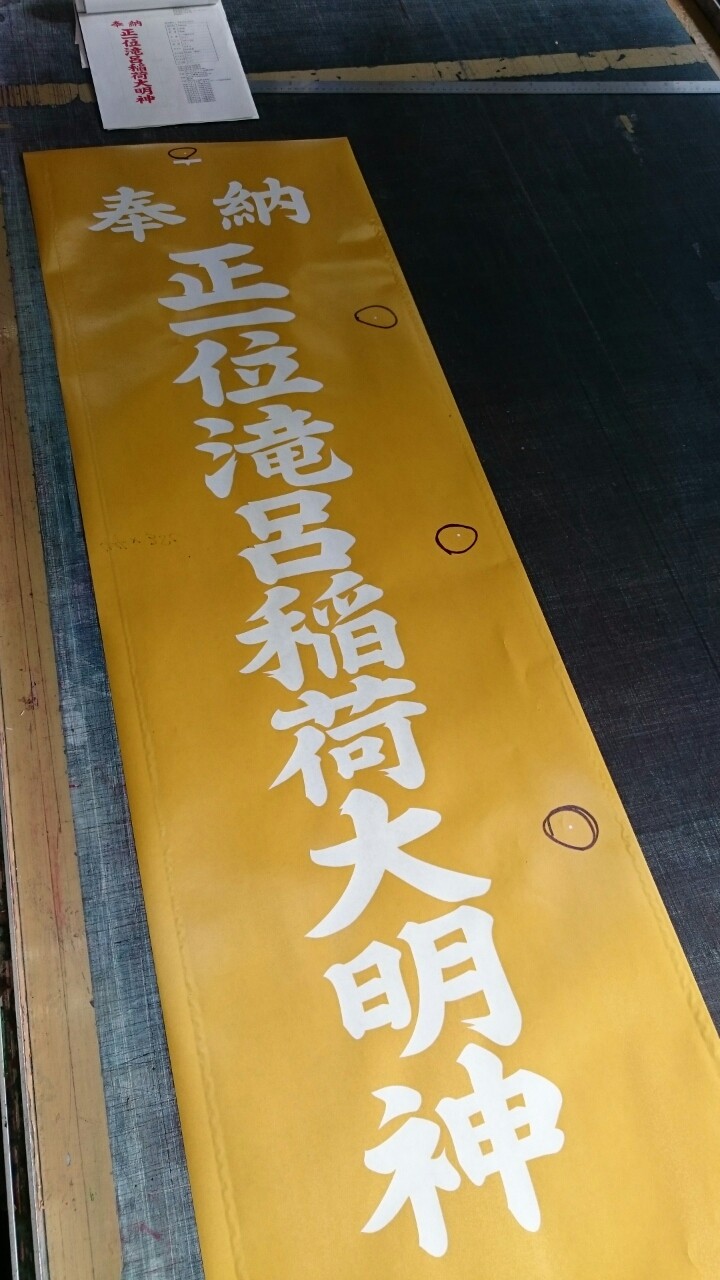 奉納
正一位滝呂稲荷大明神
奉納
正一位滝呂稲荷大明神